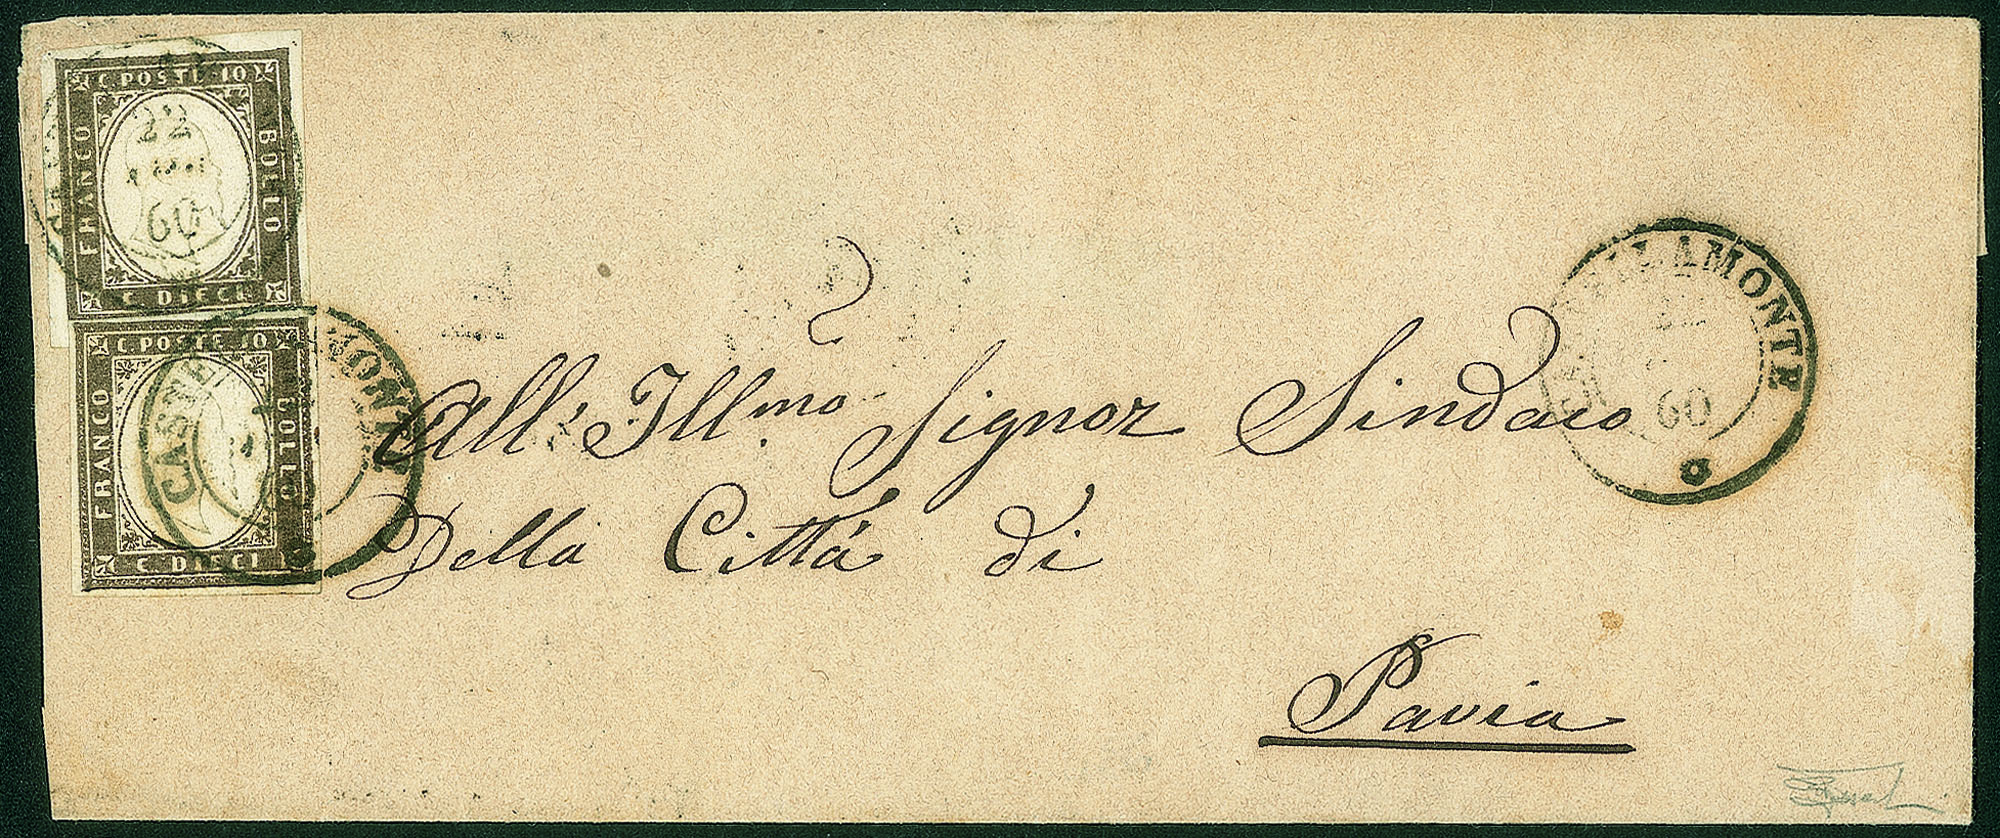 C. POSTE 10
FRANCO
BOLLO
C. DIECI
22
60
C. POSTE 10
FRANCO
BOLLO
C. DIECI
All' Ill.mo Signor Sindaco
Della Cittá di
Pavia
60